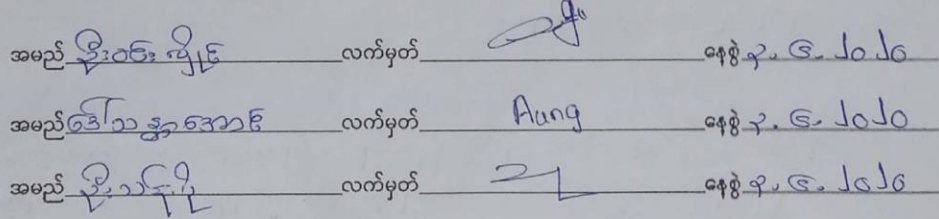 အမည် ဦးဝင်းလှိုင် လက်မှတ် နေ့စွဲ ၃.၆.၂၀၂၀
အမည် ဒေါ်သန္တာအောင် လက်မှတ် Aung နေ့စွဲ ၃.၆.၂၀၂၀
အမည် ဦး လက်မှတ် နေ့စွဲ ၃.၆.၂၀၂၀